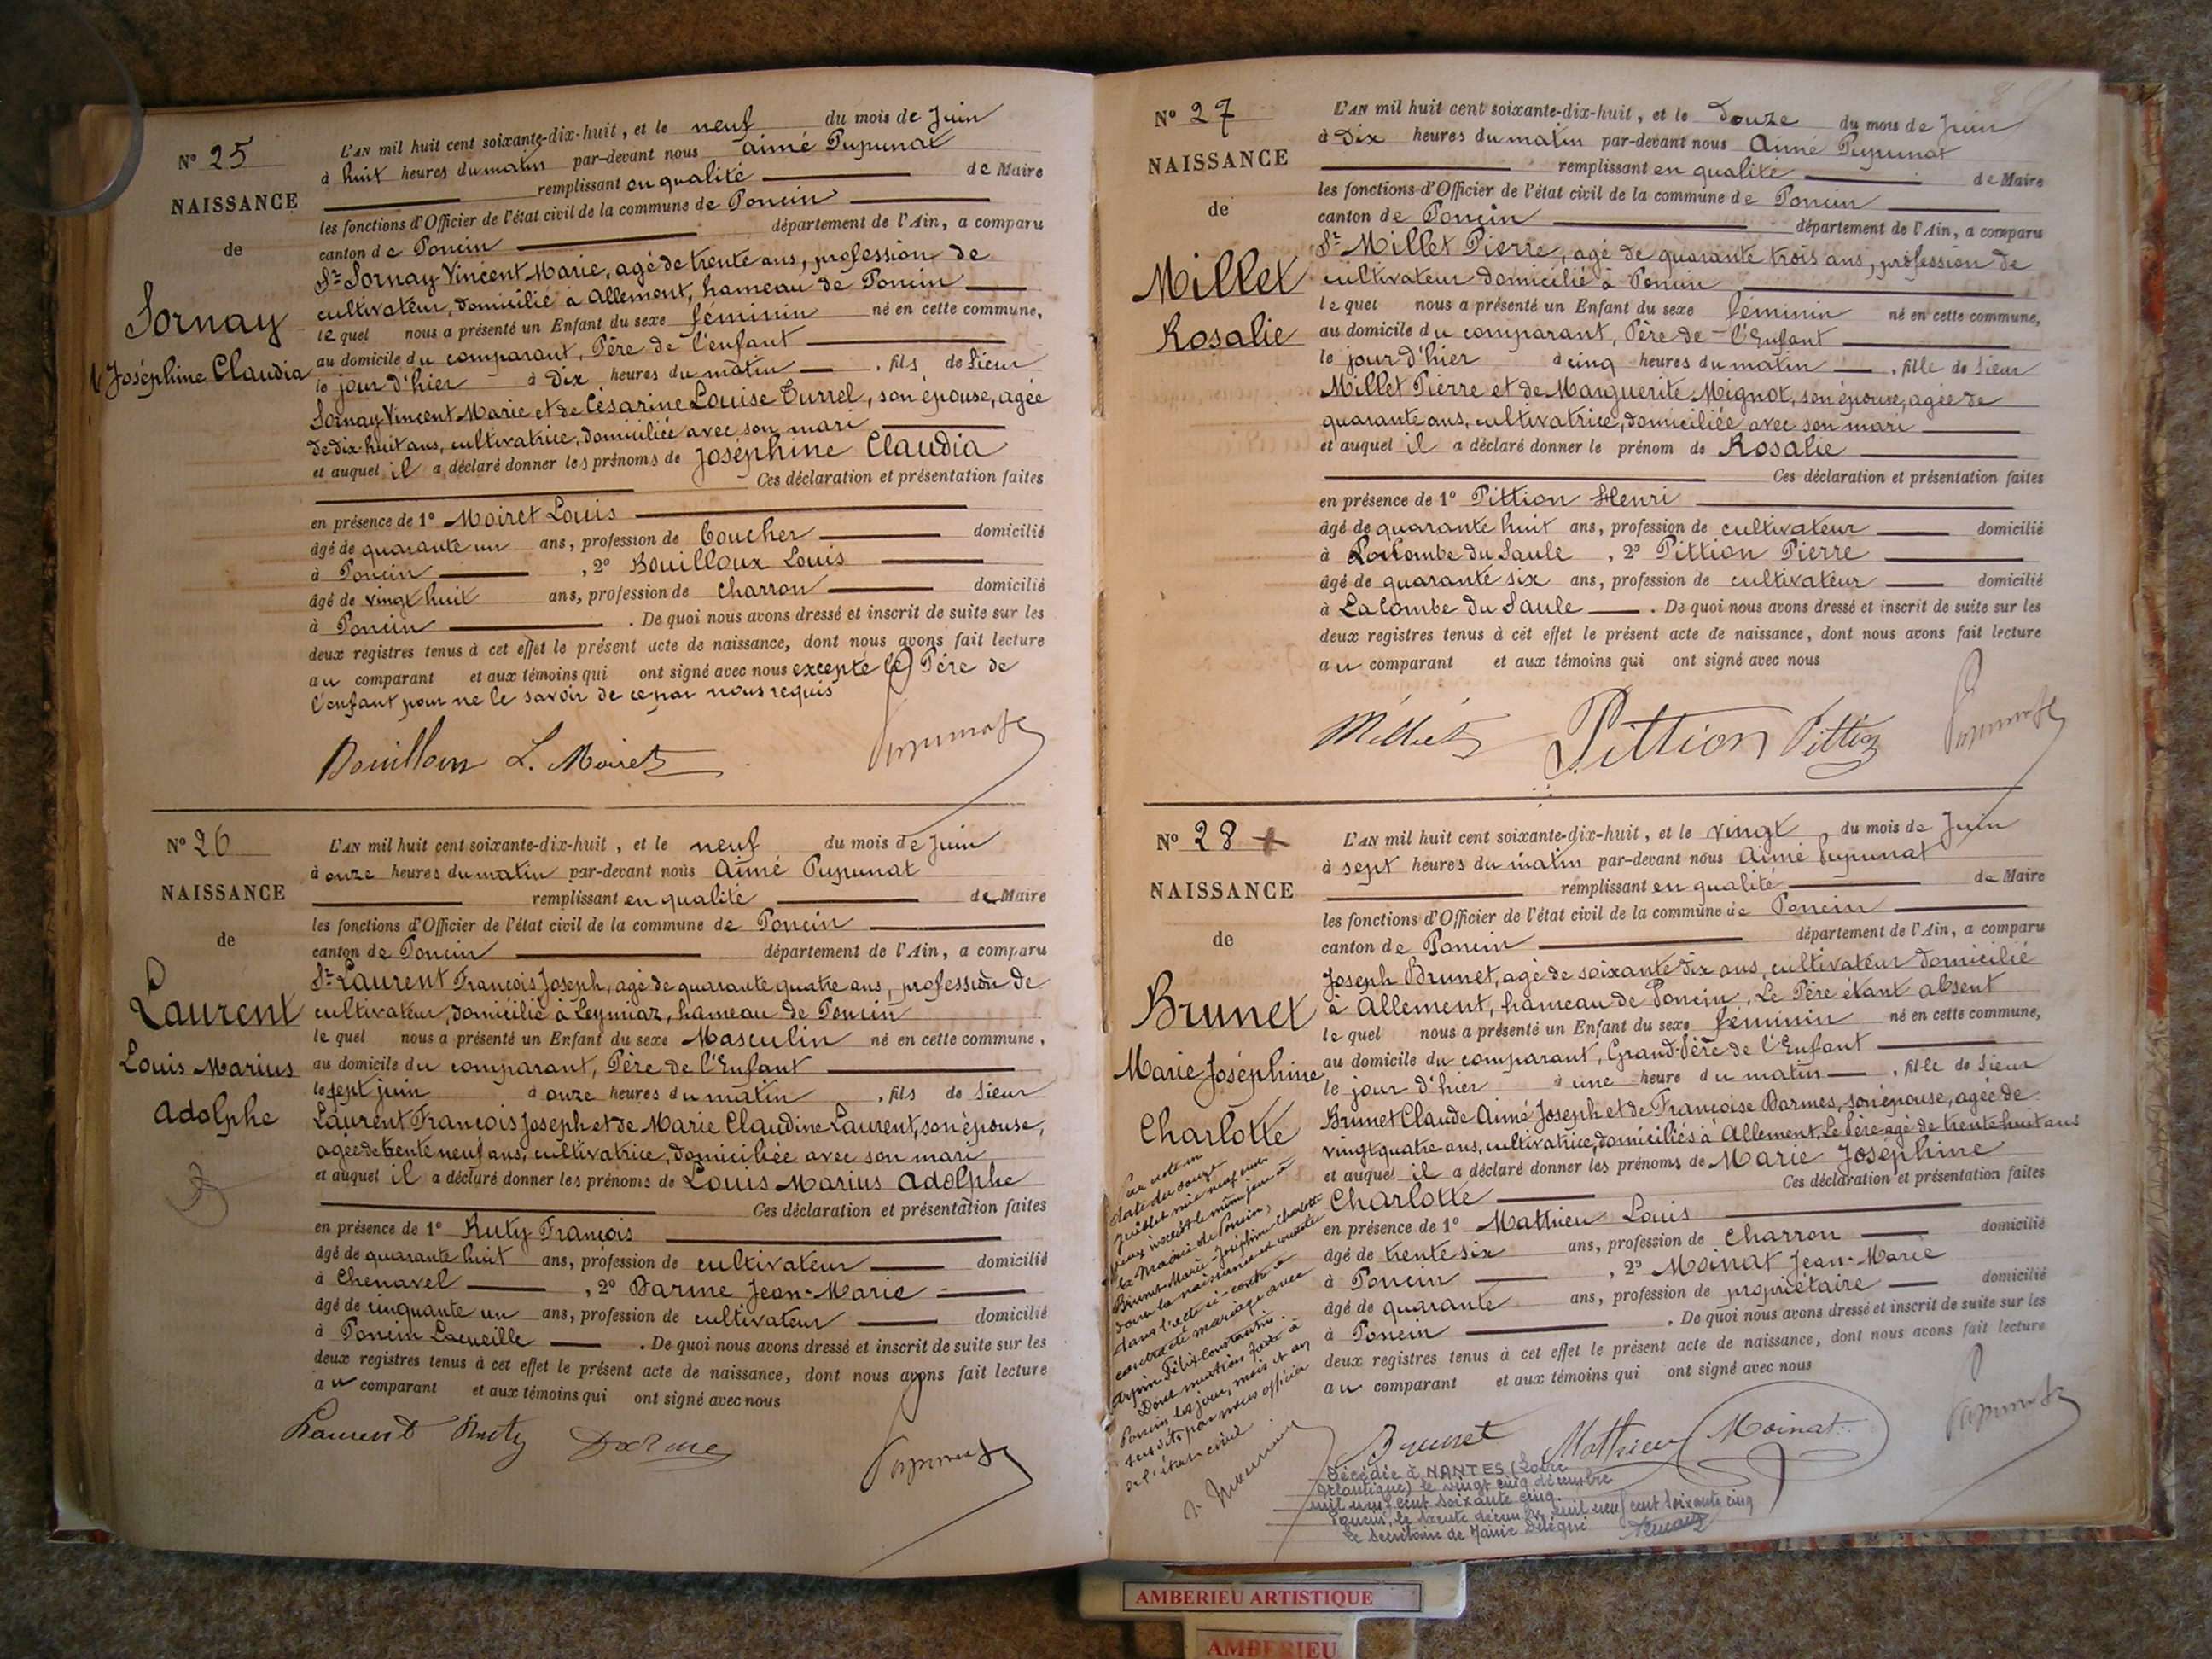 N° 25
NAISSANCE
de
Sornay
Joséphine Claudia
L'AN mil huit cent soixante-dix-huit, et le neuf du mois de Juin
à huit heures du matin par-devant nous Aimé Pupunat
remplissant en qualité de Maire
les fonctions d'Officier de l'état civil de la commune de Poncin
canton de Poncin département de l'Ain, a comparu
Sr Sornay Vincent Marie, agé de trente ans, profession de
cultivateur, domicilié à Allement, hameau de Poncin
lequel nous a présenté un Enfant du sexe féminin né en cette commune,
au domicile du comparant, Père de l'enfant
le jour d'hier à dix heures du matin, fils de Sieur
Sornay Vincent Marie et de Césarine Louise Turrel, son épouse, agée
de dix-huit ans, cultivatrice, domiciliée avec son mari
et auquel il a déclaré donner les prénoms de Joséphine Claudia
Ces déclaration et présentation faites
en présence de 1° Moiret Louis
âgé de quarante un ans, profession de boucher domicilié
à Poncin, 2° Bouilloux Louis
âgé de vingt huit ans, profession de charron domicilié
à Poncin. De quoi nous avons dressé et inscrit de suite sur les
deux registres tenus à cet effet le présent acte de naissance, dont nous avons fait lecture
au comparant et aux témoins qui ont signé avec nous excepté le Père de
l'enfant pour ne le savoir de ce par nous requis
Bouilloux L. Moiret Pupunat
N° 26
NAISSANCE
de
Laurent
Louis Marius
Adolphe
L'AN mil huit cent soixante-dix-huit, et le neuf du mois de Juin
à onze heures du matin par-devant nous Aimé Pupunat
remplissant en qualité de Maire
les fonctions d'Officier de l'état civil de la commune de Poncin
canton de Poncin département de l'Ain, a comparu
Sr Laurent François Joseph, agé de quarante quatre ans, profession de
cultivateur, domicilié à Leymiaz, hameau de Poncin
lequel nous a présenté un Enfant du sexe Masculin né en cette commune,
au domicile du comparant, Père de l'Enfant
le sept juin à onze heures du matin, fils de Sieur
Laurent François Joseph et de Marie Claudine Laurent, son épouse,
agée de trente neuf ans, cultivatrice, domiciliée avec son mari
et auquel il a déclaré donner les prénoms de Louis Marius Adolphe
Ces déclaration et présentation faites
en présence de 1° Ruty François
âgé de quarante huit ans, profession de cultivateur domicilié
à Chenavel, 2° Darme Jean-Marie
âgé de cinquante un ans, profession de cultivateur domicilié
à Poncin Lacueille. De quoi nous avons dressé et inscrit de suite sur les
deux registres tenus à cet effet le présent acte de naissance, dont nous avons fait lecture
au comparant et aux témoins qui ont signé avec nous
Laurent Ruty Darme Pupunat
N° 27
NAISSANCE
de
Millet
Rosalie
L'AN mil huit cent soixante-dix-huit, et le douze du mois de Juin
à dix heures du matin par-devant nous Aimé Pupunat
remplissant en qualité de Maire
les fonctions d'Officier de l'état civil de la commune de Poncin
canton de Poncin département de l'Ain, a comparu
Sr Millet Pierre, agé de quarante trois ans, profession de
cultivateur domicilié à Poncin
lequel nous a présenté un Enfant du sexe féminin né en cette commune,
au domicile du comparant, Père de l'Enfant
le jour d'hier à cinq heures du matin, fille de Sieur
Millet Pierre et de Marguerite Mignot, son épouse, agée de
quarante ans, cultivatrice, domiciliée avec son mari
et auquel il a déclaré donner le prénom de Rosalie
Ces déclaration et présentation faites
en présence de 1° Pittion Henri
âgé de quarante huit ans, profession de cultivateur domicilié
à La Combe du Saule, 2° Pittion Pierre
âgé de quarante six ans, profession de cultivateur domicilié
à La Combe du Saule. De quoi nous avons dressé et inscrit de suite sur les
deux registres tenus à cet effet le présent acte de naissance, dont nous avons fait lecture
au comparant et aux témoins qui ont signé avec nous
Millet Pittion Pittion Pupunat
N° 28 +
NAISSANCE
de
Brunet
Marie Joséphine
Charlotte
L'AN mil huit cent soixante-dix-huit, et le vingt du mois de Juin
à sept heures du matin par-devant nous Aimé Pupunat
remplissant en qualité de Maire
les fonctions d'Officier de l'état civil de la commune de Poncin
canton de Poncin département de l'Ain, a comparu
Joseph Brunet, agé de soixante dix ans, cultivateur domicilié
à Allement, hameau de Poncin, Le Père étant absent
lequel nous a présenté un Enfant du sexe féminin né en cette commune,
au domicile du comparant, Grand-Père de l'Enfant
le jour d'hier à une heure du matin, fille de Sieur
Brunet Claude Aimé Joseph et de Françoise Darmes, son épouse, agée de
vingt quatre ans, cultivatrice, domiciliés à Allement, Le Père agé de trente huit ans
et auquel il a déclaré donner les prénoms de Marie Joséphine
Charlotte Ces déclaration et présentation faites
en présence de 1° Mathieu Louis
âgé de trente six ans, profession de Charron domicilié
à Poncin, 2° Moinat Jean-Marie
âgé de quarante ans, profession de propriétaire domicilié
à Poncin. De quoi nous avons dressé et inscrit de suite sur les
deux registres tenus à cet effet le présent acte de naissance, dont nous avons fait lecture
au comparant et aux témoins qui ont signé avec nous
Brunet Mathieu Moinat Pupunat
Par acte en
date du douze
juillet mil neuf cent
deux inscrit le même jour à
la Mairie de Poncin,
Brunet Marie Joséphine Charlotte
dont la naissance est constatée
dans l'acte ci-contre a
contracté mariage avec
Arpin Félix Constantin.
Dont mention faite à
Poncin les jour, mois et an
susdits par nous officier
de l'état civil
Décédée à NANTES (Loire
Atlantique) le vingt cinq décembre
mil neuf cent soixante cinq.
Poncin, le trente décembre mil neuf cent soixante cinq
Le Secrétaire de Mairie Délégué
AMBERIEU ARTISTIQUE
AMBERIEU